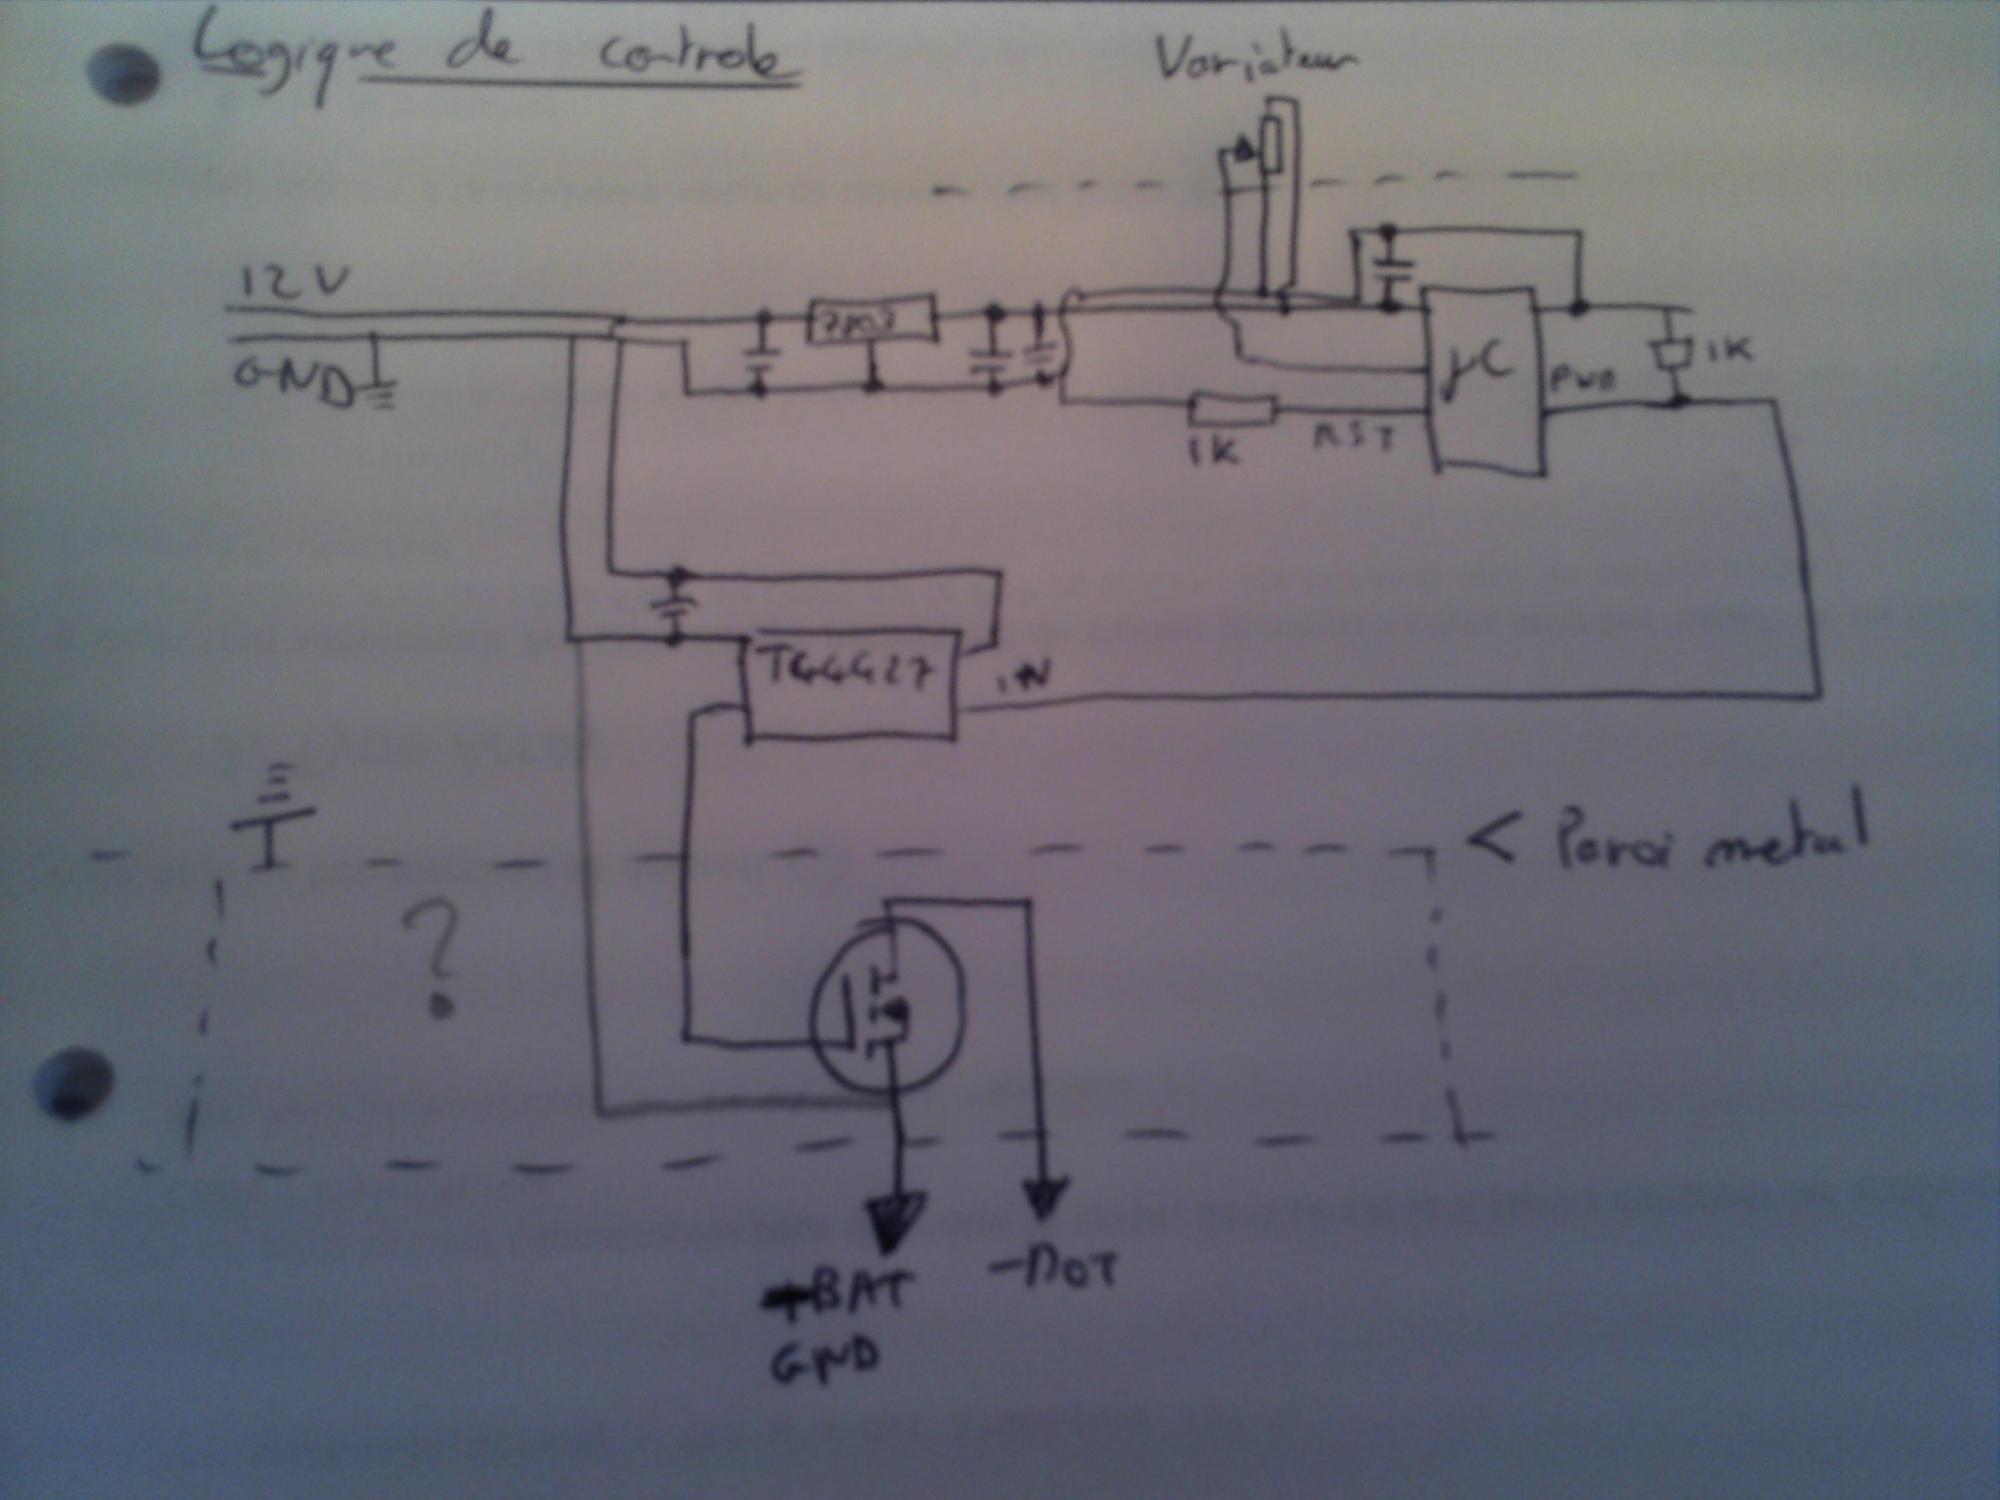 Logique de controle
Variateur
12V
GND
7805
µC
PWM
1K
1K
RST
TC4427
IN
?
< Paroi metal
BAT
-MOT
GND